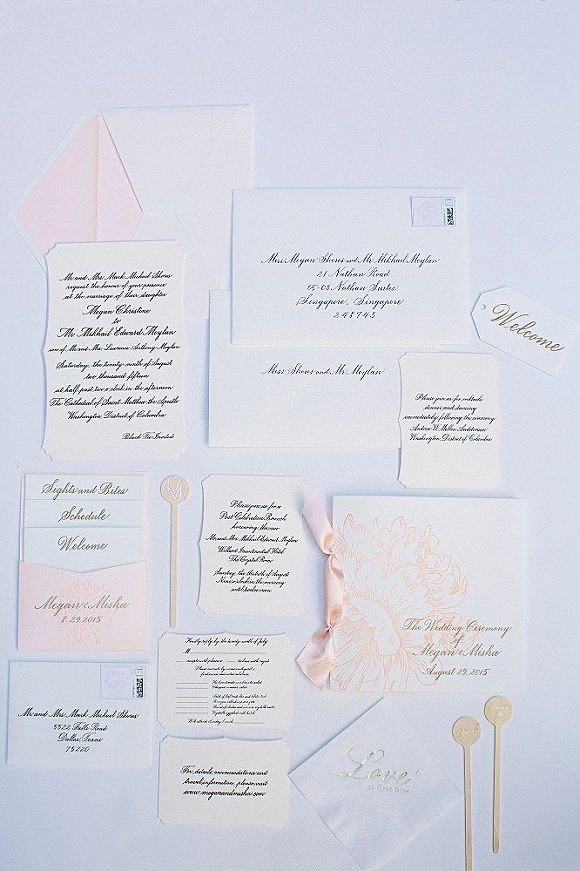 Miss Megan Shores and Mr Mikhail Moylan
21 Nathan Road
05-03 Nathan Suites
Singapore, Singapore
248743
Welcome
Mr and Mrs Mark Michael Shores
request the honour of your presence
at the marriage of their daughter
Megan Christine
to
Mr Mikhail Edward Moylan
son of Mr and Mrs Lawrence Anthony Moylan
Saturday, the twenty-ninth of August
two thousand fifteen
at half past two o'clock in the afternoon
The Cathedral of Saint Matthew the Apostle
Washington, District of Columbia
Black Tie Invited
Miss Shores and Mr Moylan
Please join us for cocktails
dinner and dancing
immediately following the ceremony
Andrew W. Mellon Auditorium
Washington, District of Columbia
Sights and Bites
Schedule
Welcome
Megan & Misha
8.29.2015
M
Please join us for a
Post Celebration Brunch
honoring the new
Mr and Mrs Mikhail Edward Moylan
Willard Intercontinental Hotel
The Crystal Room
Sunday, the thirtieth of August
The Wedding Ceremony
of
Megan & Misha
August 29, 2015
Mr and Mrs. Mark Michael Shores
Falls Road
Dallas, Texas
75220
Kindly reply by the twenty-ninth of July
M
For details, accommodations and
travel information, please visit
www.meganandmisha.com
Love
at first bite